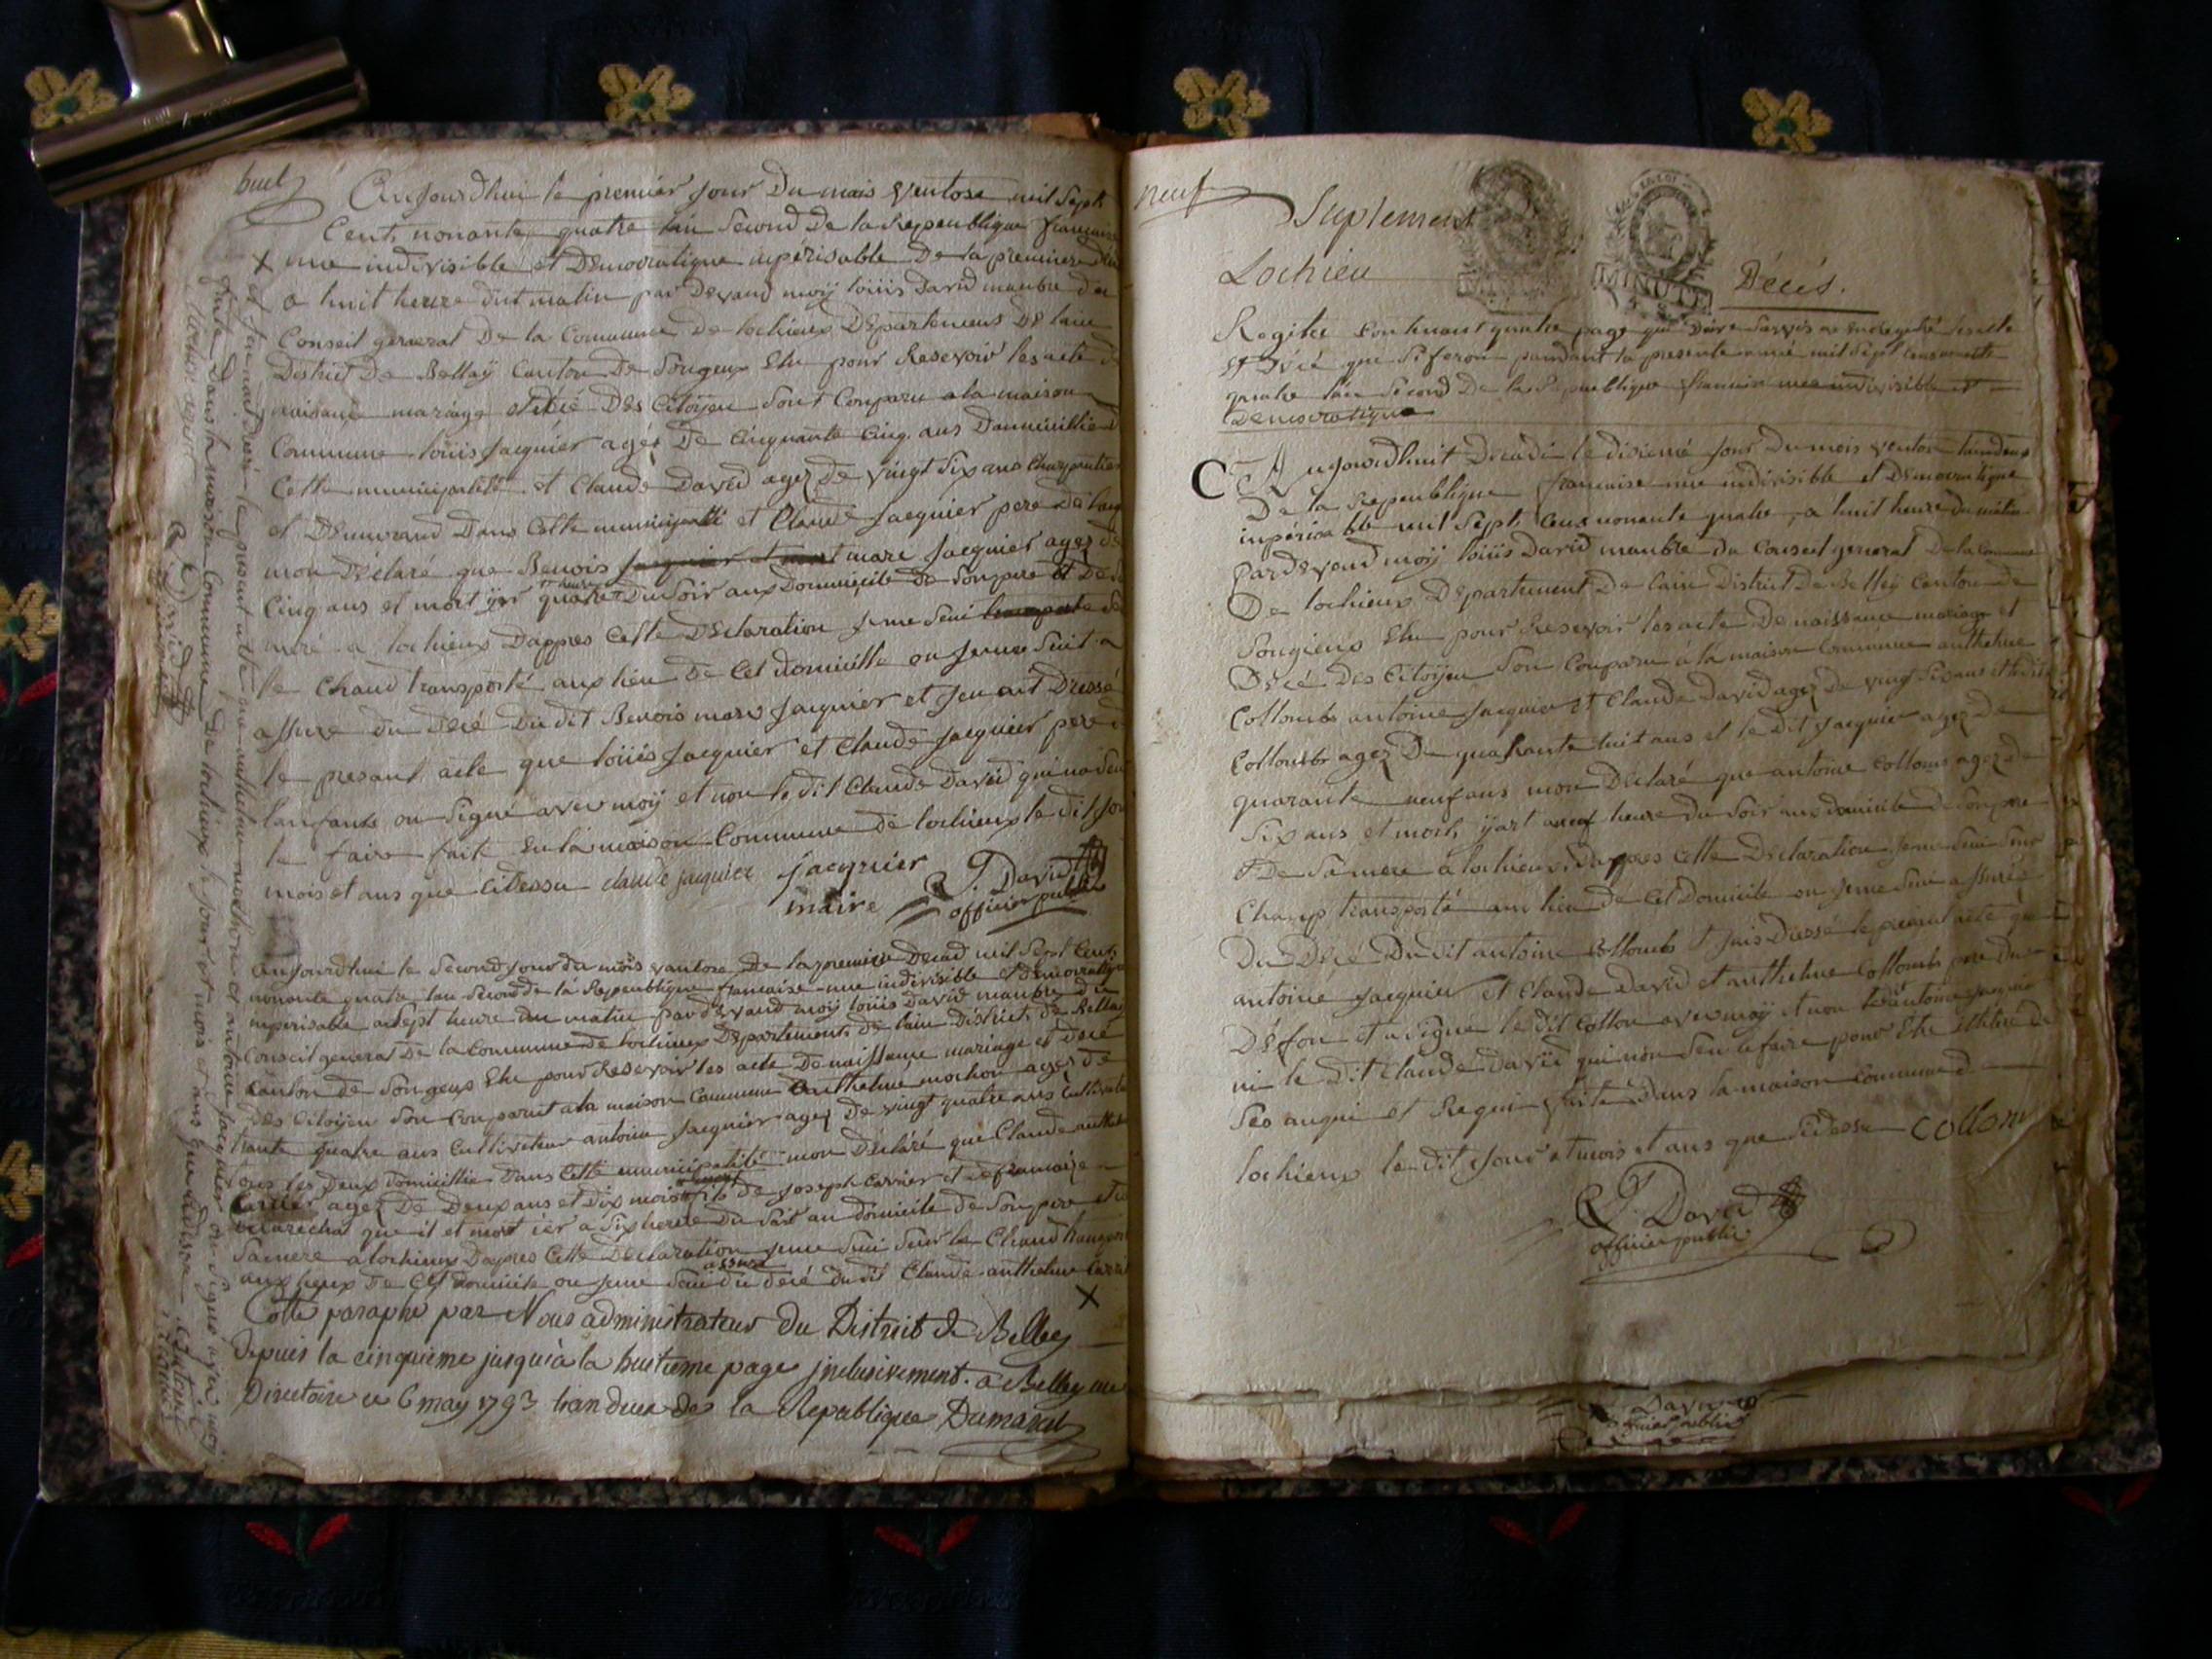 huit
Aujourdhui le premier jour du mois ventose mil Sept
Cent nonante quatre lan Second De la Repeublique francaise
une indivisible et Democratique inpérisable De la premiere
a huit heure dut matin par Devand moÿ loüis David manbre du
Conseil general De la Comune de lochieux Departement De lain
District De Belleÿ Canton De Songeux Elu pour Resevoir les acte de
naisance mariage et décé Des Citoÿen Sont Comparu a la maison
Commune loüis Jacquier agéz De Cinquante Cinq ans Domicillié
Cette municipalité et Claude David agez de vingt Six ans Charpentier
et Demeurand Dans Cette municipalité et Claude Jacquier pere de lanf
mon Déclaré que Benois marc Jacquier agez de
Cinq ans et mort ÿer quatre heure Du Soir aux Domicile de Son pere et De Sa
mere a lochieux Dappres Cette Declaration Je me Sui
le Chand transporté aux lieu De Cet domicille ou Je me Suit a
assure du Decé Du dit Benois marc Jacquier et Jen ait Dressé
le presant acte que loüis Jacquier et Claude Jacquier pere d
lanfant on Signé avec moÿ et non le dit Claude David qui na Seu
le faire fait en la maison Commune de lochieux le dit Jour
mois et ans que cidessu claude jacquier jacquier
maire
David
officier public
Aujourdhui le Second Jour du mois vantose De la premiere Decad mil Sept Cent
nonante quatre lan Second de la Repeublique francaise une indivisible et démocratique
inperisable a Sept heure du matin par devand moÿ loüis David manbre du
Conseil general De la Commune de lochieux Departement de lain District de Belley
Canton de Songeux Elu pour Resevoir les acte De naissance mariage et decé
des Citoÿen Son Conparut a la maison Commune Anthelme mochon agez de
trante quatre ans Cultivateur antoine Jacquier agez De vingt quatre ans Cultivateur
tous les Deux domicillié Dans Cette municipalité mon Déclaré que Claude anthelme
Carrier agez De Deux ans et Dix mois fils de Joseph Carrier et de francoize
marechal que il et mort ier a Six heure du Soir au domicile de Son pere et de
Sa mere a lochieux Dapres Cette Declaration Je me Sui Sur le Chand transporté
aux lieux De Cet domicile ou Je me Sui assuré du decé du dit Claude anthelme Carrier
X
Cotté paraphé par Nous administrateur du District de Belley
depuis la cinquième jusqu'à la huitieme page inclusivement. à Belley au
Directoire ce 6 may 1793 lan deux de la Republique Dumarest
X et Jen nait Dressé le presant acte que anthelme mochon et antoine Jacquier on Signé avec moÿ
faite Dans la maison Commune De lochieux le jour et mois et ans que cidessu Antoine
Mochon Jacquier
David
officier public
neuf
Suplement
Lochieu
MINUTE
Décés.
Regitre Contenant quatre page qui doive Servir a enregitré les acte
et Décé que Se feron pandant la presente ané mil Sept Cens nonante
quatre lan Second De la Repeublique francaise une indivisible et
Democratique
C Aujourdhuit Decadi le dixieme Jour Du mois ventose lan deux
De la Repeublique francaise une indivisible et Democratique
inpérisable mil Sept Cens nonante quatre, a huit heure du matin
par devend moÿ loüis David manbre du Conseil general De la Commune
De lochieux Departement De lain District De Belley Canton de
Songieux Elu pour Resevoir les acte De naissance mariage et
Décé Des Citoÿen Son Conparu à la maison Commune anthelme
Collomb antoine Jacquier et Claude David agez De vingt Six ans et le dit
Collomb agez De quarante huit ans et le Dit Jacquier agez de
quarante neuf ans mon Declaré que antoine Collomb agez de
Six ans et mort ÿart neuf heure du Soir aux domicile de Son pere
et De Sa mere a lochieux, Dappres Cette Declaration Je me Sui Sur
Champ transporté au lieu de Cet Domicile ou Je me Sui assurée
Du Décé Du dit antoine Collomb et Jais Dressé le presant acte que
antoine Jacquier et Claude David et anthelme Collomb pere Du
Défon et a Signé le dit Collon avec moÿ et non le dit antoine Jacquier
ni le Dit Claude David qui non Seu le faire pour Etre illétré de
Ses anqui et Requi faite Dans la maison Commune de
lochieux le dit Jour et mois et ans que Sidessu Collomb
David
officier public
David
officier public